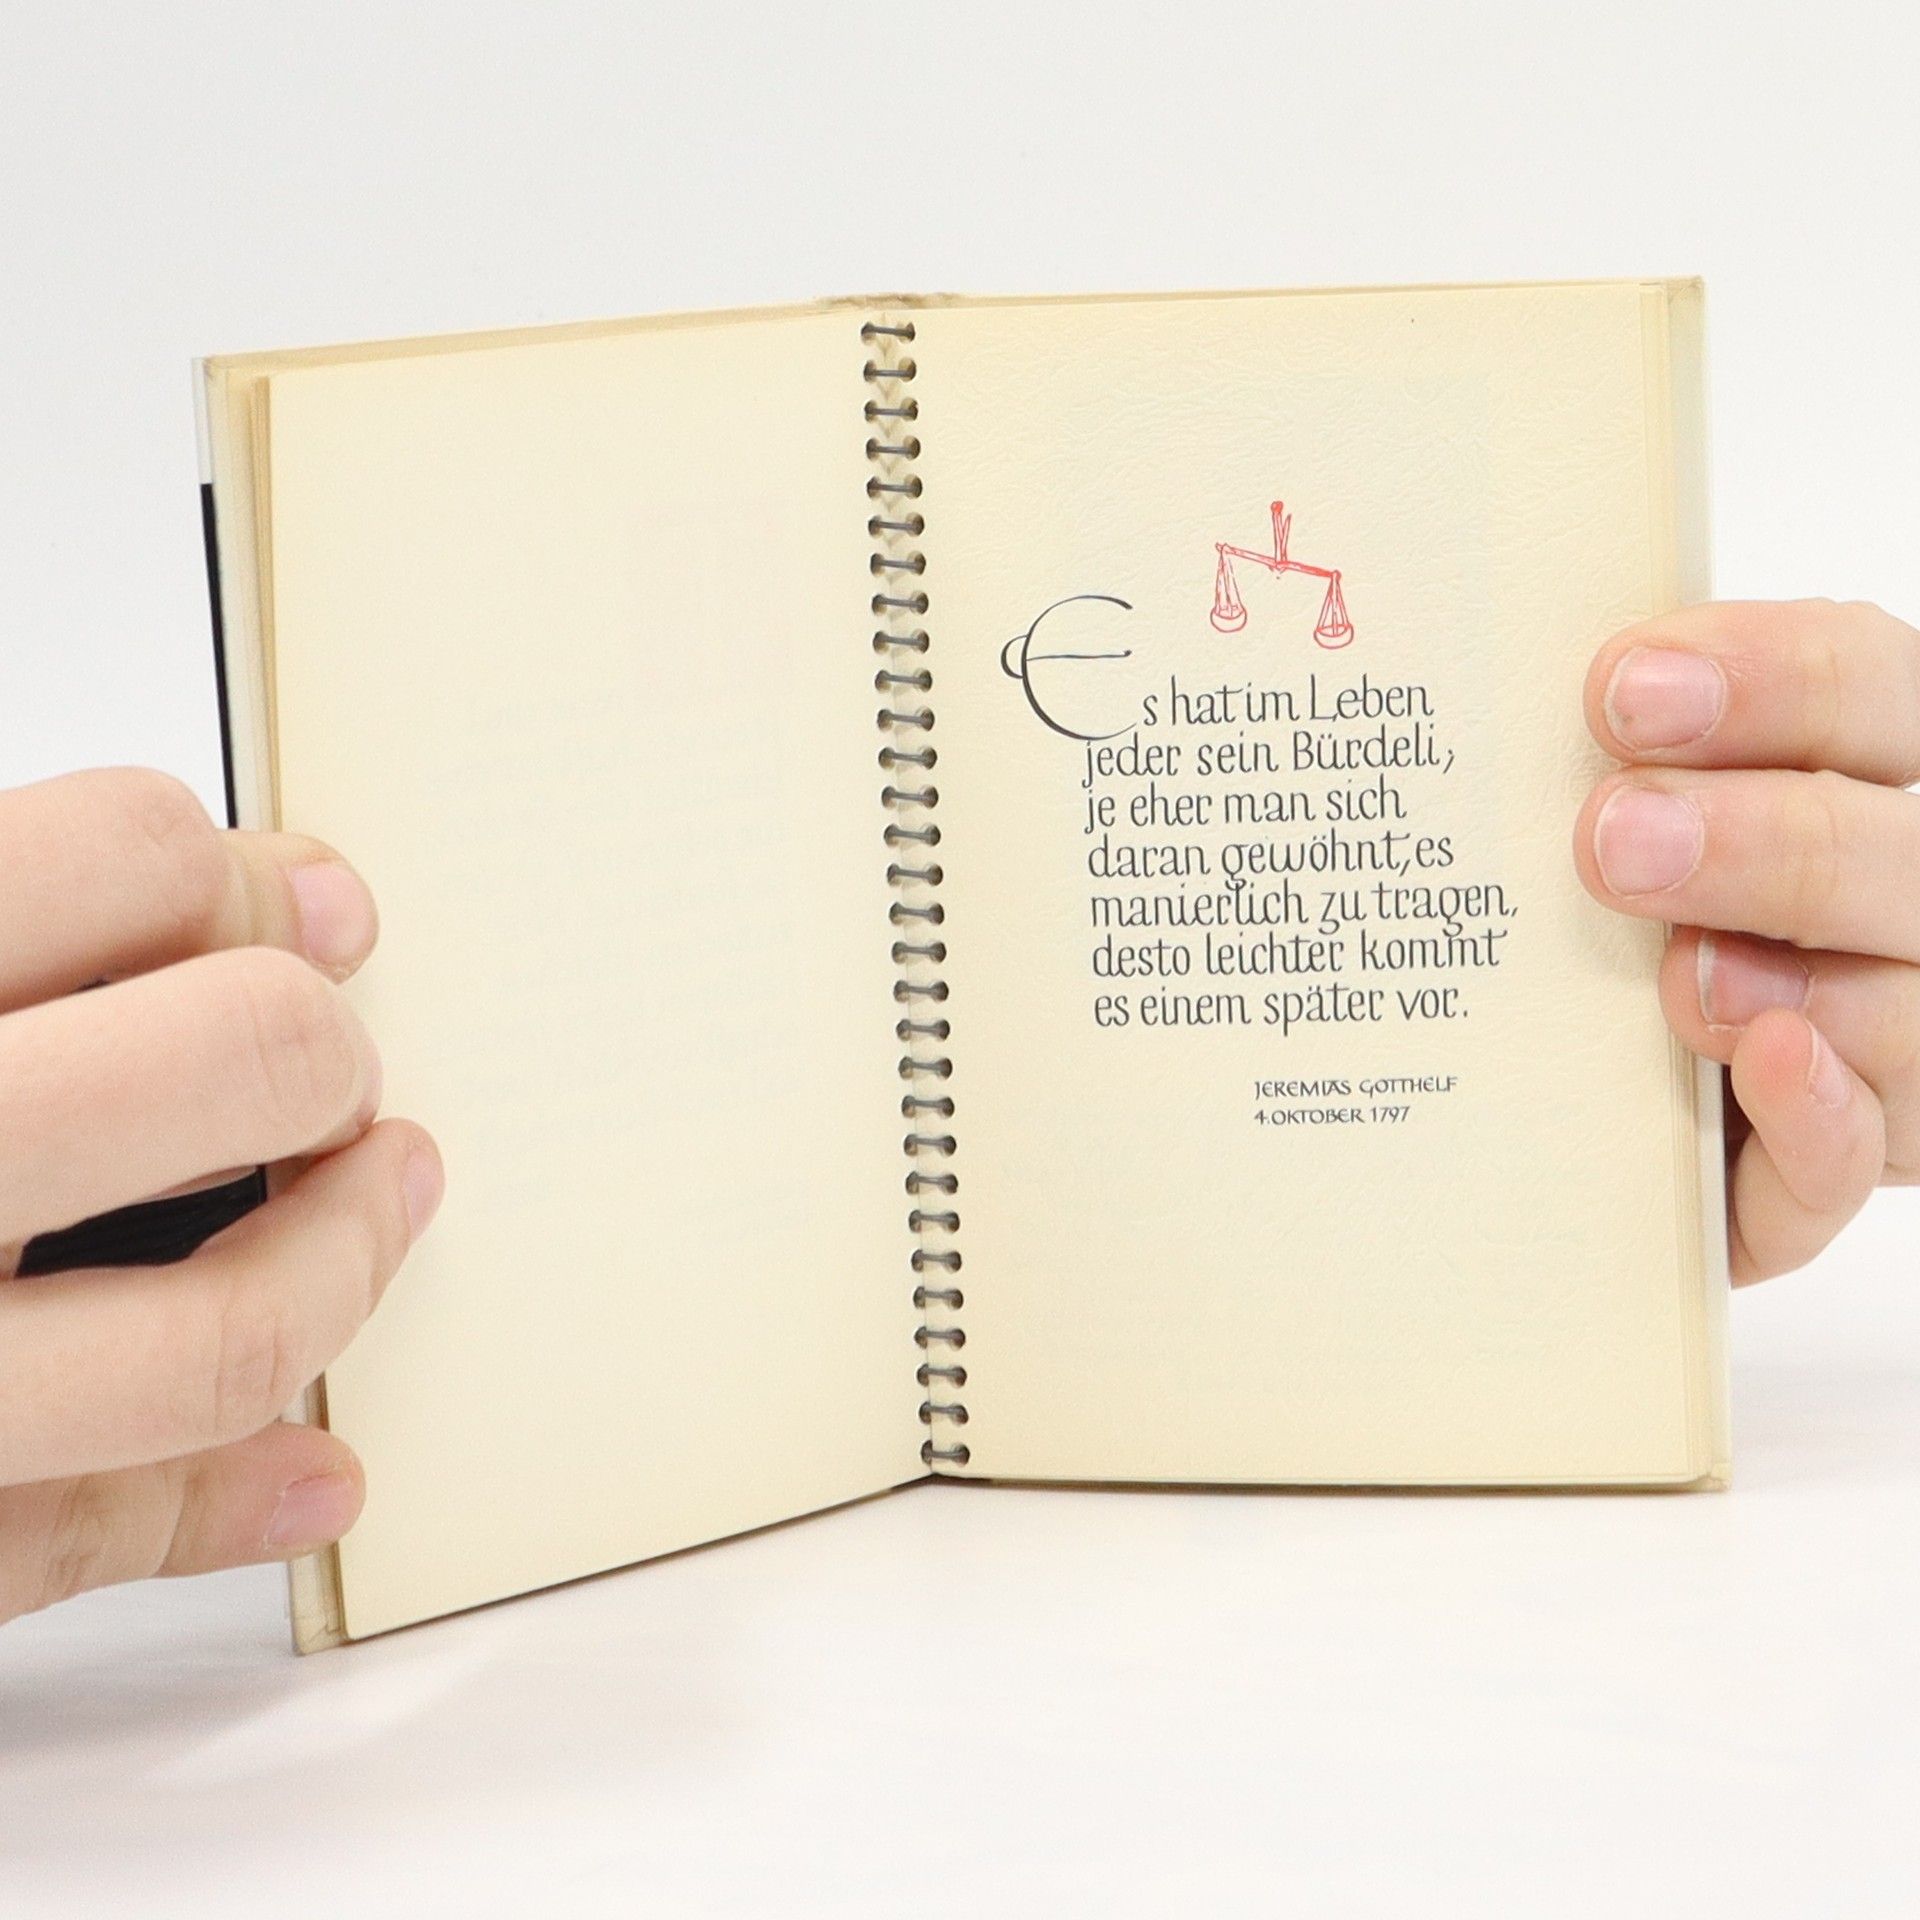 Es hat im Leben
jeder sein Bürdeli;
je eher man sich
daran gewöhnt, es
manierlich zu tragen,
desto leichter kommt
es einem später vor.
JEREMIAS GOTTHELF
4. OKTOBER 1797